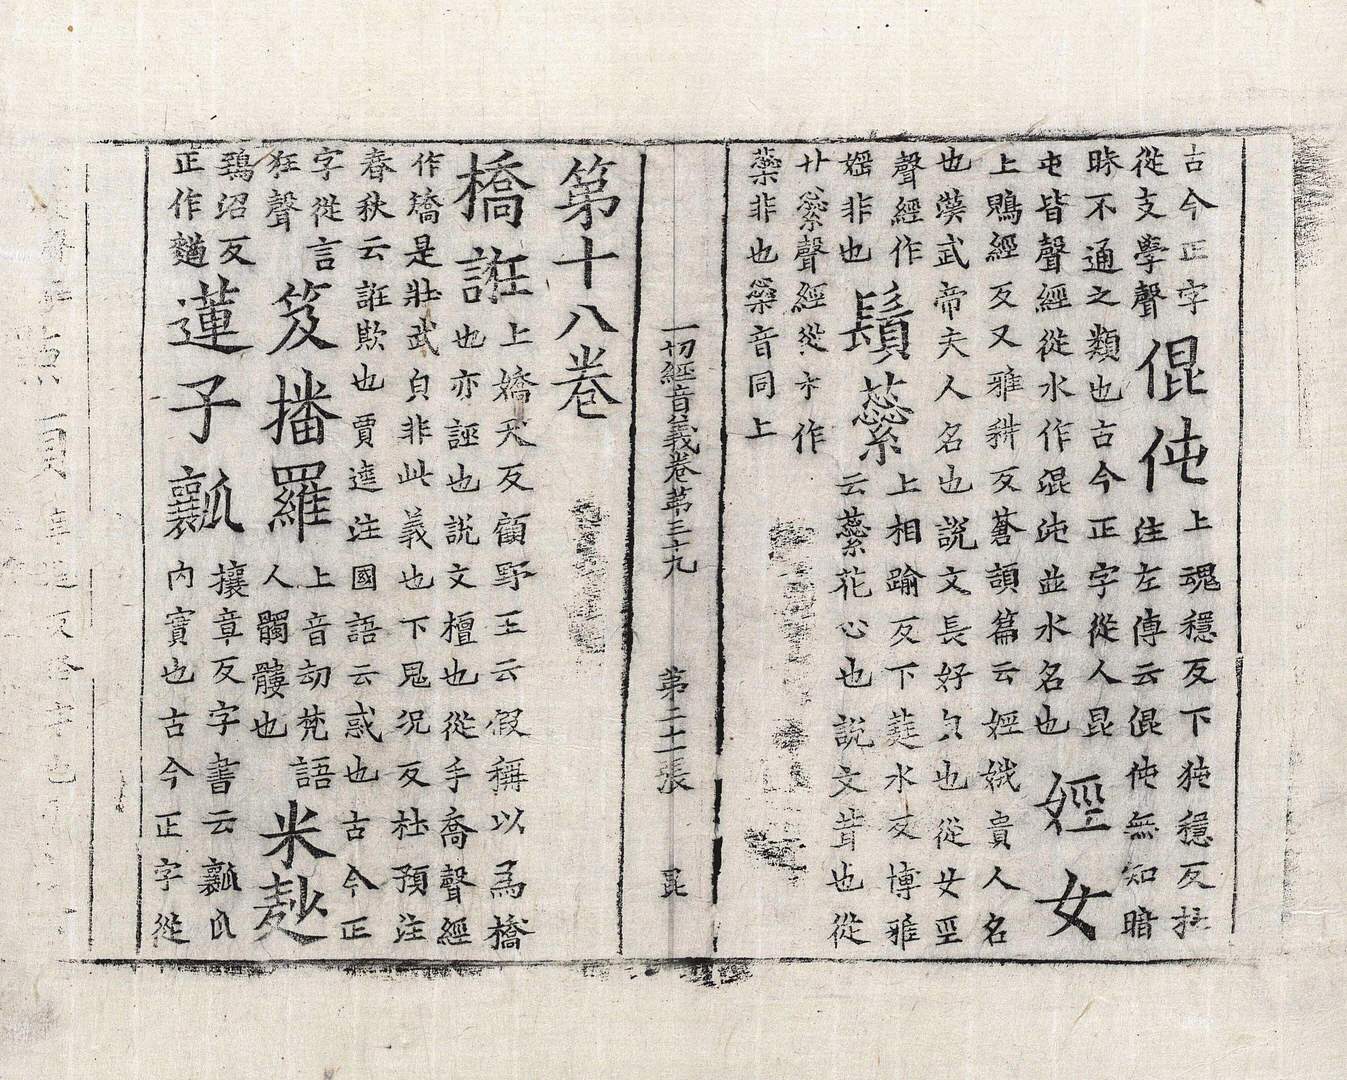 古今正字
從支學聲
倱伅
上魂穩反下㹠穩反抂
注左傳云倱伅無知暗
時不通之類也古今正字從人昆
屯皆聲經從水作混沌並水名也
娙女
上鶃經反又雅耕反蒼頡篇云娙娥貴人名
也漢武帝夫人名也說文長好皃也從女巠
聲經作
婬非也
鬚蘂
上相踰反下蕤水反博雅
云蘂花心也說文茸也從
廾蘂聲經從木作
蘂非也蘂音同上
一切經音義卷第三十九 第二十一張 昆
第十八卷
橋誑
上嬌夭反顧野王云假稱以爲橋
也亦誣也說文檀也從手喬聲經
作矯是壯武皃非此義也下俱況反杜預注
春秋云誑欺也賈逵注國語云惑也古今正
字從言
狂聲
笈播羅
上音劫梵語
人髑髏也
米麨
鵄沼反
正作麵
蓮子瓤
攘章反字書云瓤瓜
内實也古今正字從